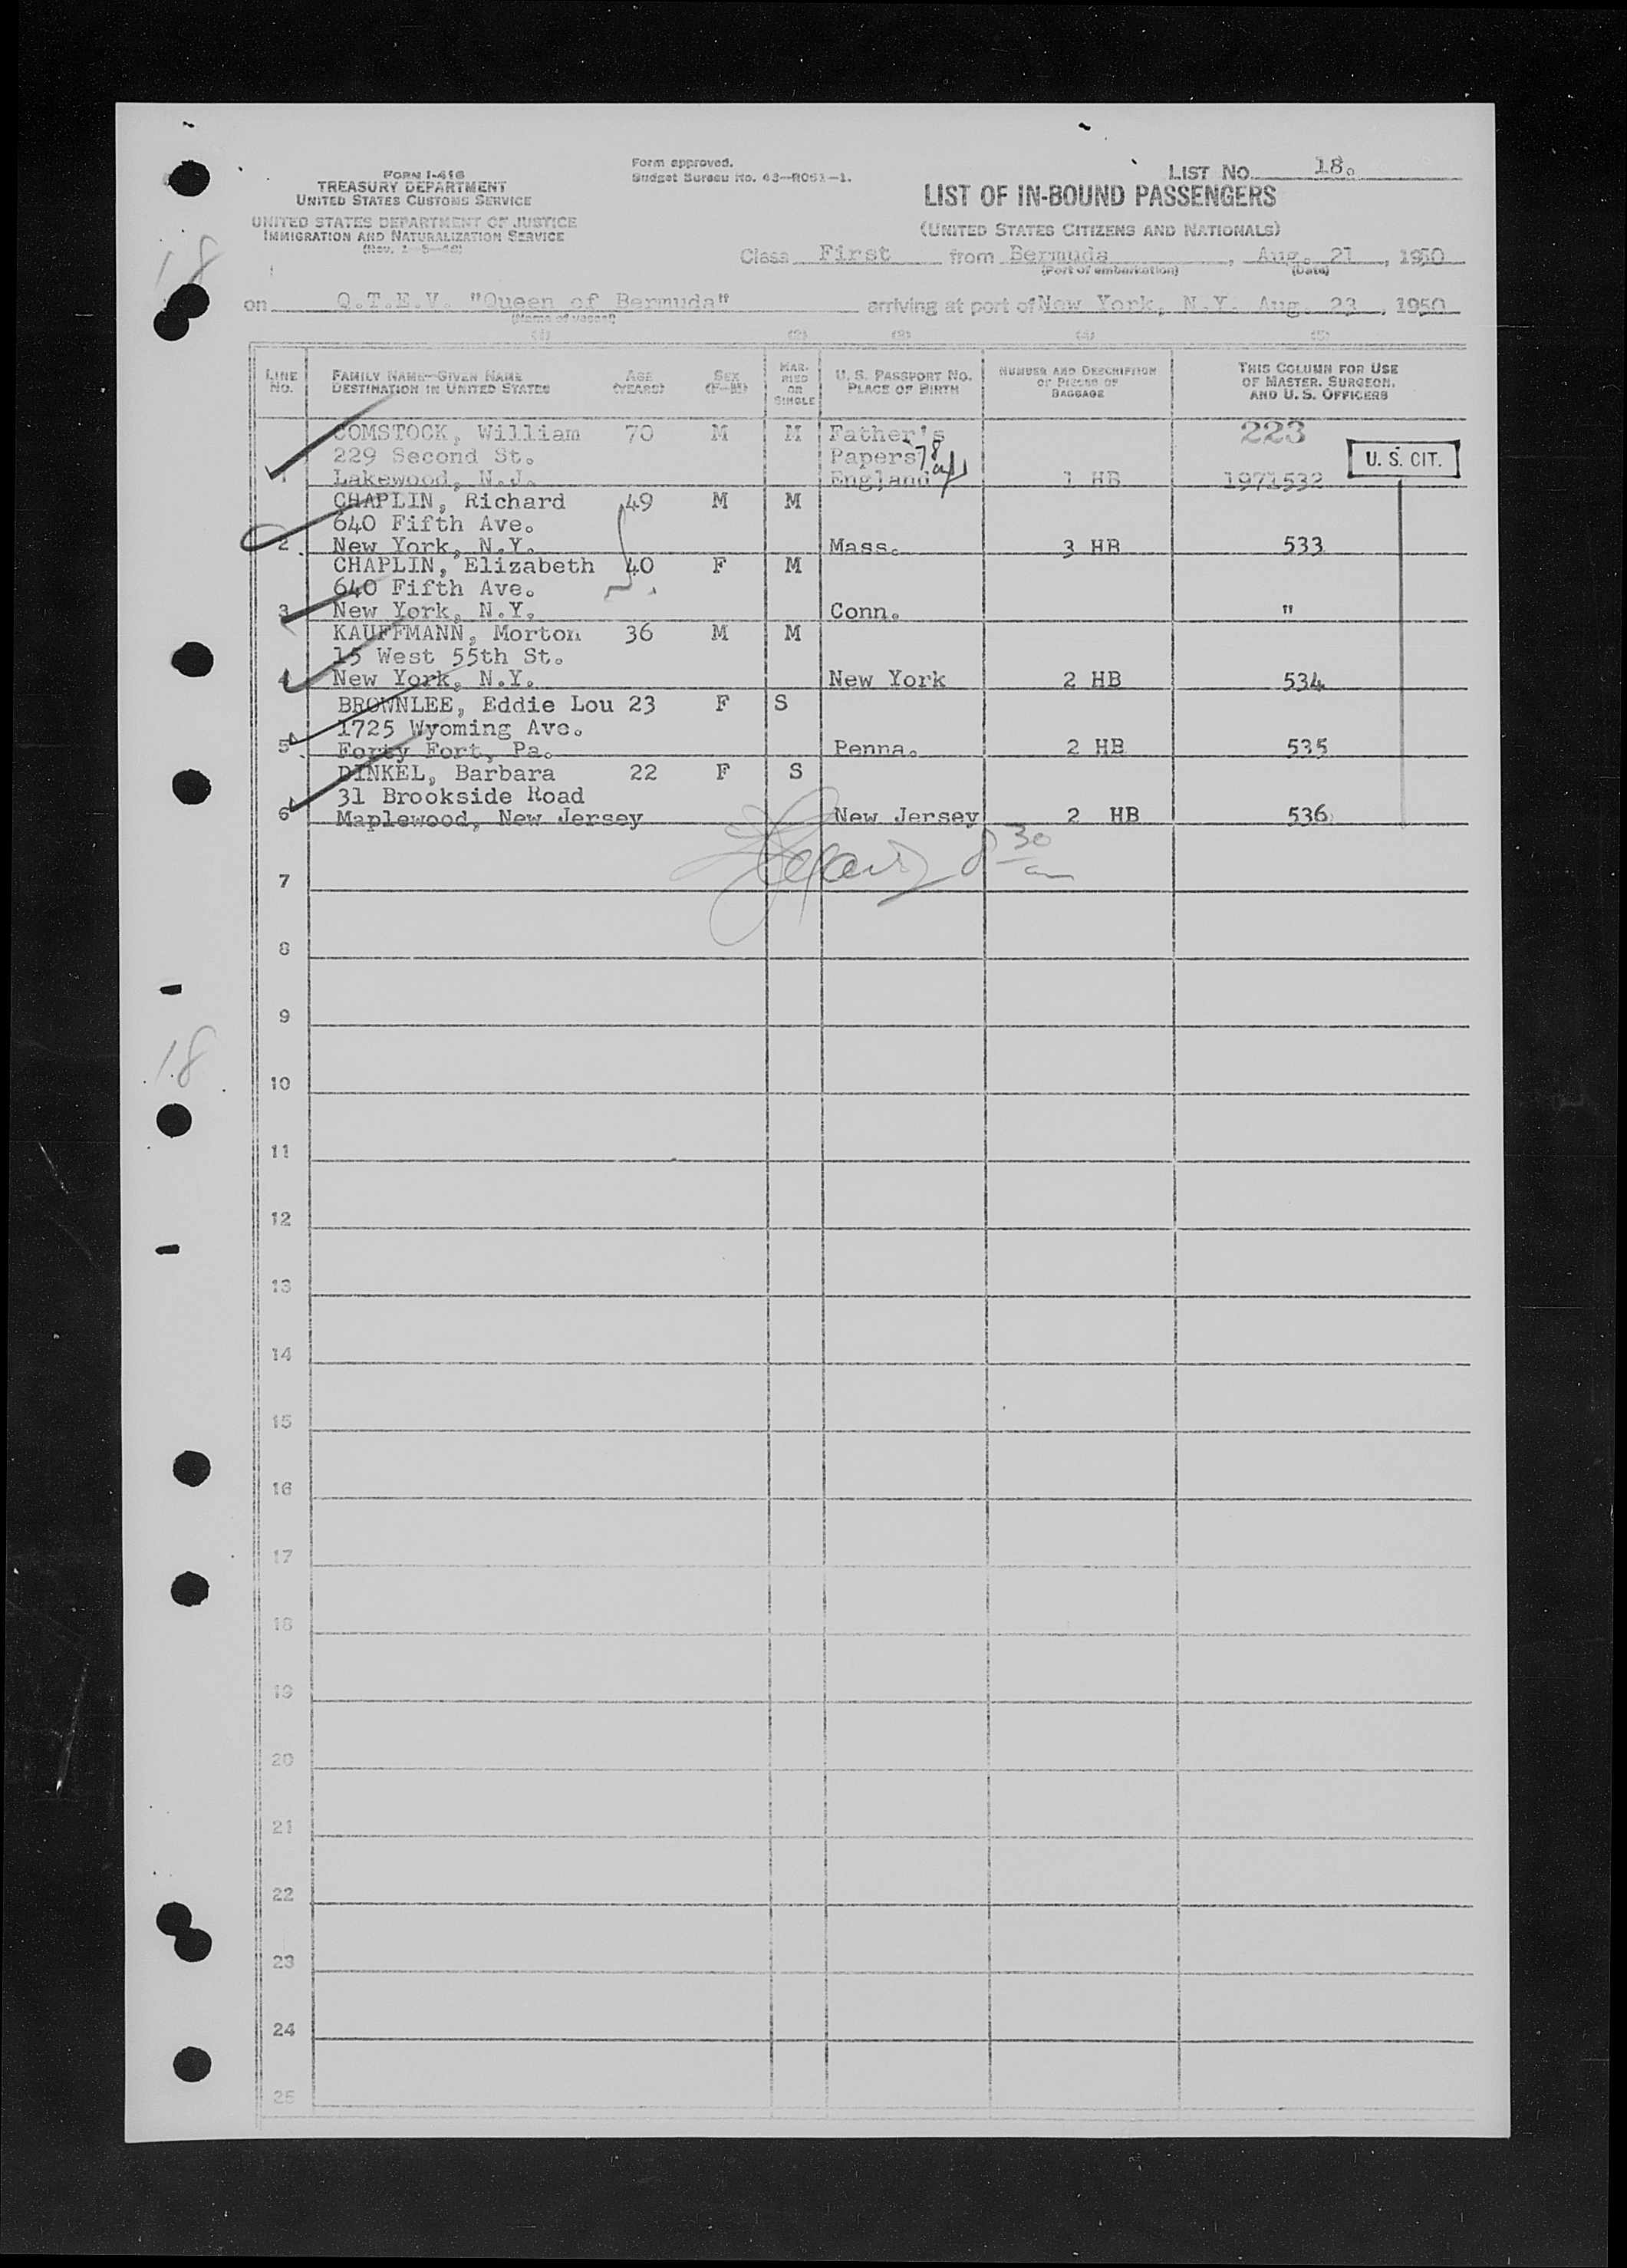 FORM I-416
TREASURY DEPARTMENT
UNITED STATES CUSTOMS SERVICE
UNITED STATES DEPARTMENT OF JUSTICE
IMMIGRATION AND NATURALIZATION SERVICE
Form approved.
Budget Bureau No. 43—R051—1.
LIST NO. 18.
LIST OF IN-BOUND PASSENGERS
(UNITED STATES CITIZENS AND NATIONALS)
18
Class First from Bermuda, Aug. 21, 1950
(Port of embarkation) (Date)
on Q.T.E.V. "Queen of Bermuda" arriving at port of New York, N.Y. Aug. 23, 1950
(Name of vessel)
(1) (2) (3) (4) (5)
LINE NO.
FAMILY NAME—GIVEN NAME
DESTINATION IN UNITED STATES
AGE
(YEARS)
SEX
(F—M)
MAR-
RIED
OR
SINGLE
U. S. PASSPORT NO.
PLACE OF BIRTH
NUMBER AND DESCRIPTION
OF PIECES OF
BAGGAGE
THIS COLUMN FOR USE
OF MASTER, SURGEON,
AND U. S. OFFICERS
COMSTOCK, William 70 M M Father's 223
229 Second St. Papers 78 U. S. CIT.
1 Lakewood, N.J. England 1 HB 1971532
CHAPLIN, Richard 49 M M
640 Fifth Ave.
2 New York, N.Y. Mass. 3 HB 533
CHAPLIN, Elizabeth 40 F M
640 Fifth Ave.
3 New York, N.Y. Conn. "
KAUFFMANN, Morton 36 M M
15 West 55th St.
4 New York, N.Y. New York 2 HB 534
BROWNLEE, Eddie Lou 23 F S
1725 Wyoming Ave.
5 Forty Fort, Pa. Penna. 2 HB 535
DINKEL, Barbara 22 F S
31 Brookside Road
6 Maplewood, New Jersey New Jersey 2 HB 536
8 30 am
7
8
9
18
10
11
12
13
14
15
16
17
18
19
20
21
22
23
24
25